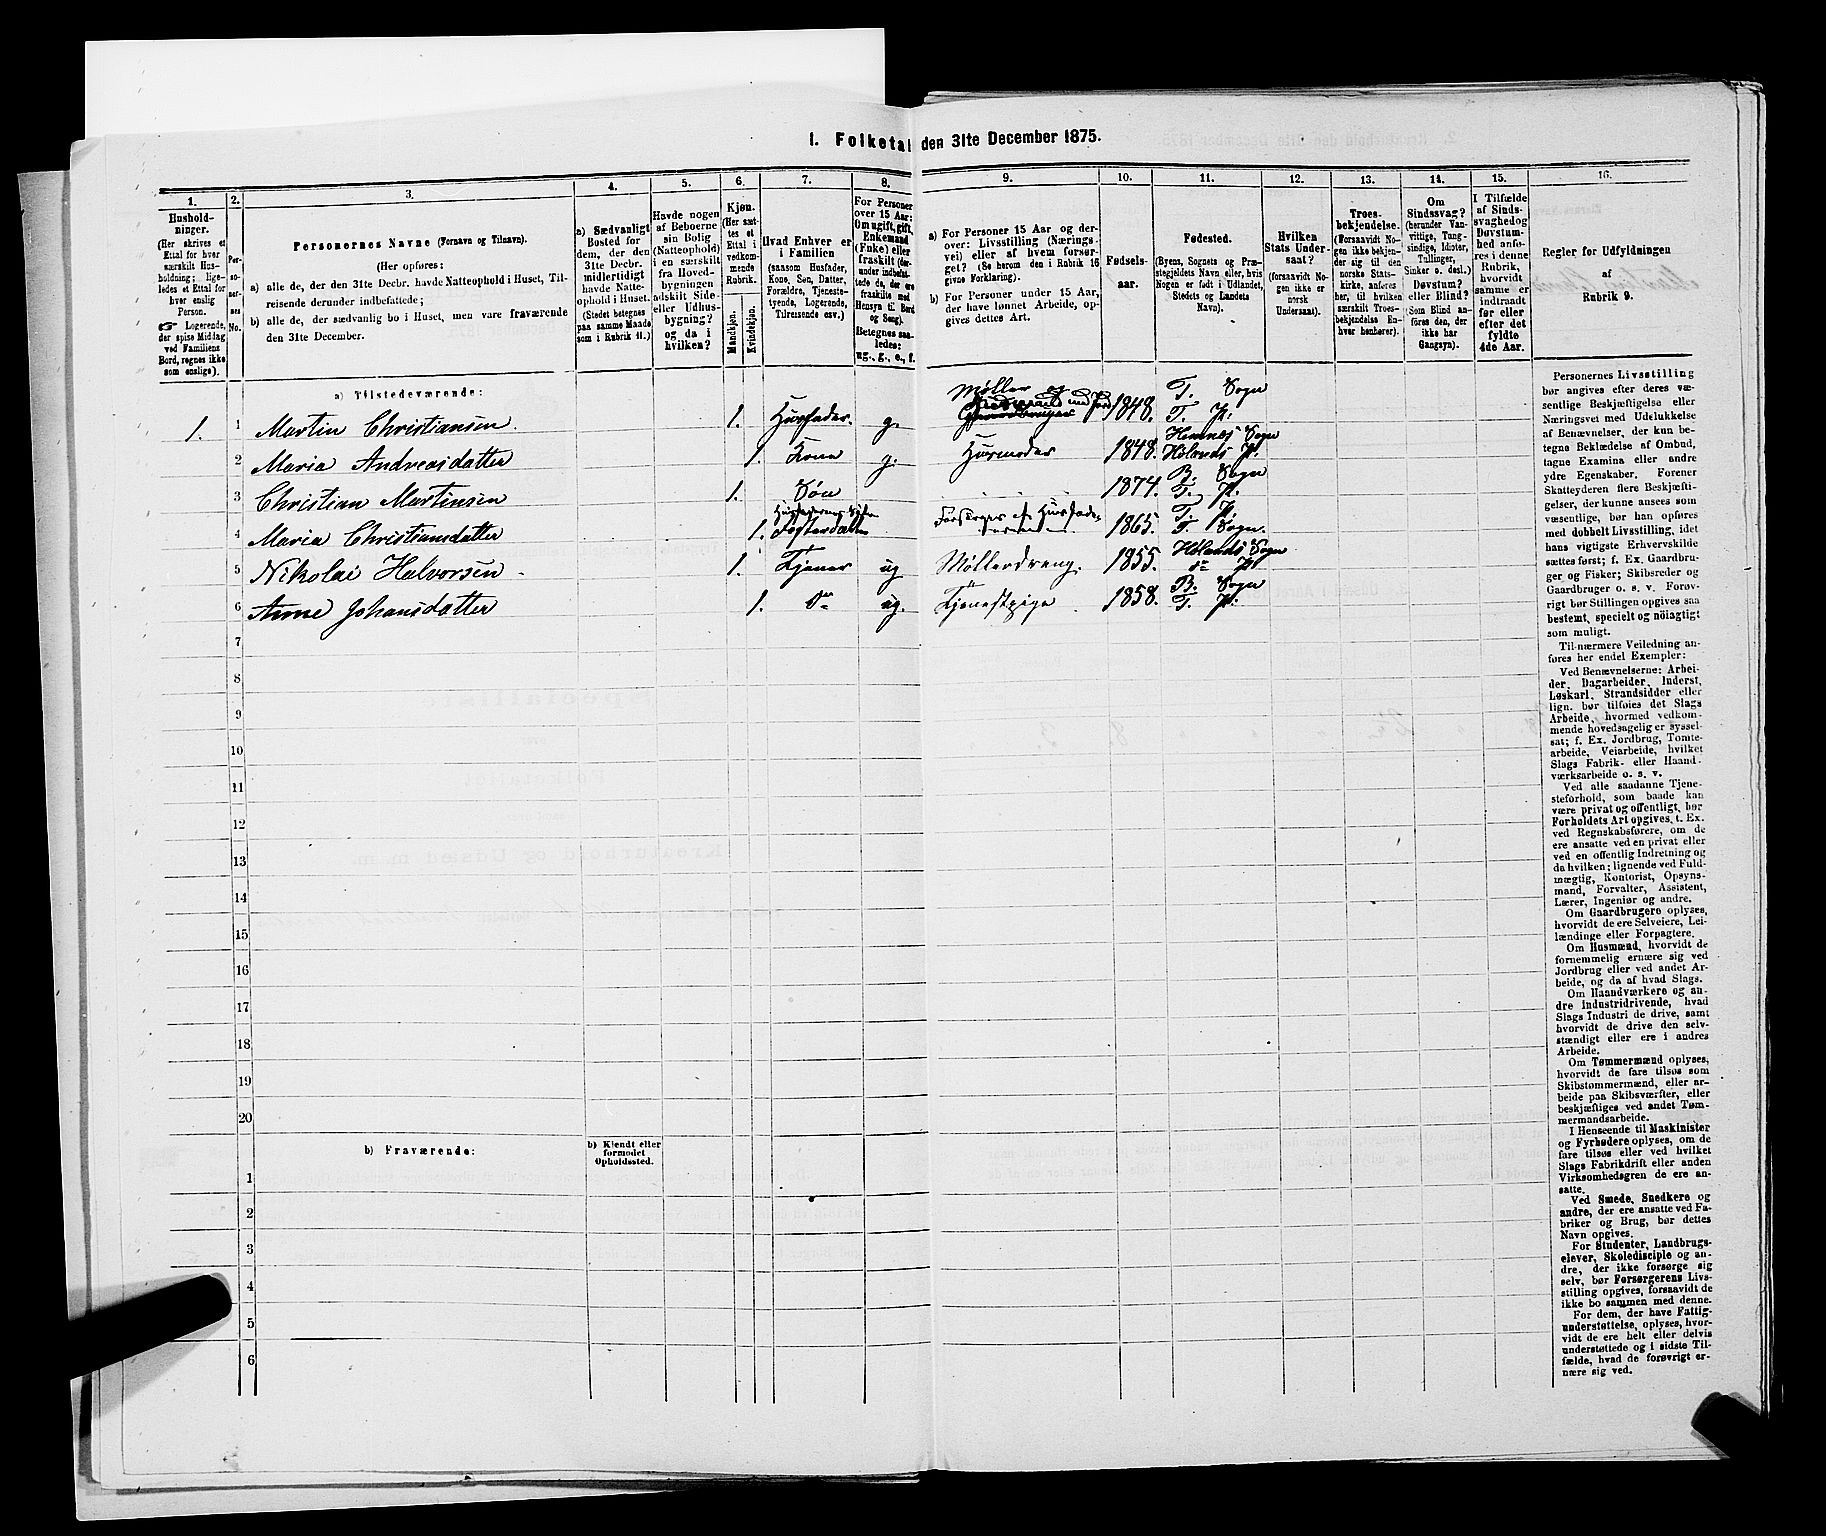 1. Folketal den 31te December 1875.
1. 2. 3. 4. 5. 6. 7. 8. 9. 10. 11. 12. 13. 14. 15. 16.
Hushold-
ninger.
(Her skrives et
Ettal for hver
særskilt Hus-
holdning; lige-
ledes et Ettal for
hver enslig
Person.
☞ Logerende,
der spise Middag
ved Familiens
Bord, regnes ikke
som enslige).
Per-
so-
ner-
nes
No.
Personernes Navne (Fornavn og Tilnavn).
(Her opføres:
a) alle de, der den 31te Decbr. havde Natteophold i Huset, Til-
reisende derunder indbefattede;
b) alle de, der sædvanlig bo i Huset, men vare fraværende
den 31te December.
a) Sædvanligt
Bosted for
dem, der den
31te Decbr.
midlertidigt
havde Natte-
ophold i Huset.
(Stedet betegnes
paa samme Maade
som i Rubrik 11.)
Havde nogen
af Beboerne
sin Bolig
(Natteophold)
i en særskilt
fra Hoved-
bygningen
adskilt Side-
eller Udhus-
bygning?
og da i
hvilken?
Kjøn.
(Her sæt-
tes et
Ettal i
vedkom-
mende
Rubrik.
Mandkjøn.
Kvindekjøn.
Hvad Enhver er
i Familien
(saasom Husfader,
Kone, Søn, Datter,
Forældre, Tjeneste-
tyende, Logerende,
Tilreisende osv.)
For Personer
over 15 Aar:
Om ugift, gift,
Enkemand
(Enke) eller
fraskilt
Betegnes saa-
ledes:
ug., g., e., f.
a) For Personer 15 Aar og der-
over: Livsstilling (Nærings-
vei) eller af hvem forsør-
get? (Se herom den i Rubrik 16
givne Forklaring).
b) For Personer under 15 Aar,
der have lønnet Arbeide, op-
gives dettes Art.
Fødsels-
aar.
Fødested.
(Byens, Sognets og Præ-
stegjeldets Navn eller, hvis
Nogen er født i Udlandet,
Stedets og Landets
Navn).
Hvilken
Stats Under-
saat?
(forsaavidt No-
gen ikke er
norsk
Undersaat).
Troes-
bekjendelse.
(Forsaavidt No-
gen ikke bekjen-
der sig til den
norske Stats-
kirke, anføres
her, til hvilken
særskilt Troes-
bekjendelse En-
hver henhører).
Om
Sindssvag?
(herunder Van-
vittige, Tung-
sindige, Idioter,
Tullinger,
Sinker o. desl.)
Døvstum?
eller Blind?
(Som Blind an-
føres den, der
ikke har
Gangsyn).
I Tilfælde
af Sinds-
svaghed og
Døvstum-
hed anfø-
res i denne
Rubrik,
hvorvidt
samme er
indtraadt
før eller
efter det
fyldte
4de Aar.
Regler for Udfyldningen
af
Rubrik 9.
a) Tilstedeværende:
1. 1 Martin Christiansen. 1. Husfader. g. Møller og 1848. T. Sogn T. Pr:
2 Maria Andreasdatter 1. Kone g. Husmoder 1848. Hemnes Sogn Hølands Pr.
3 Christian Martinsen 1. Søn 1874. B. Sogn T. Pr.
4 Maria Christiansdatter 1. Fosterdatter Forsørges af Husfaderen 1865. T. Pr. T. Sogn.
5 Nikolai Halvorsen 1. Tjener ug Møllerdreng. 1855. Hølands Sogn do Pr
6 Anne Johansdatter 1. do ug. Tjenestpige 1858. B. Sogn T. Pr:
7
8
9
10
11
12
13
14
15
16
17
18
19
20
b) Fraværende:
b) Kjendt eller
formodet
Opholdssted.
1
2
3
4
5
6
Personernes Livsstilling
bør angives efter deres væ-
sentlige Beskjæftigelse eller
Næringsvei med Udelukkelse
af Benævnelser, der kun be-
tegne Beklædelse af Ombud,
tagne Examina eller andre
ydre Egenskaber. Forener
Skatteyderen flere Beskjæfti-
gelser, der kunne ansees som
væsentlige, bør han opføres
med dobbelt Livsstilling, idet
hans vigtigste Erhvervskilde
sættes først; f. Ex. Gaardbru-
ger og Fisker; Skibsreder og
Gaardbruger o. s. v. Forøv-
rigt bør Stillingen opgives saa
bestemt, specielt og nöiagtigt
som muligt.
Til nærmere Veiledning an-
føres her endel Exempler:
Ved Benævnelserne: Arbei-
der, Dagarbeider, Inderst,
Løskarl, Strandsidder eller
lign. bør tilføies det Slags
Arbeide, hvormed vedkom-
mende hovedsagelig er syssel-
sat; f. Ex. Jordbrug, Tomte-
arbeide, Veiarbeide, hvilket
Slags Fabrik- eller Haand-
værksarbeide o. s. v.
Ved alle saadanne Tjene-
steforhold, som baade kan
være privat og offentligt, bør
Forholdets Art opgives, t. Ex.
ved Regnskabsførere, om de
ere ansatte ved en privat eller
ved en offentlig Indretning og
da hvilken; lignende ved Fuld-
mægtig, Kontorist, Opsyns-
mand, Forvalter, Assistent,
Lærer, Ingeniør og andre.
Om Gaardbrugere oplyses,
hvorvidt de ere Selveiere, Lei-
lændinge eller Forpagtere.
Om Husmænd, hvorvidt de
fornemmelig ernære sig ved
Jordbrug eller ved andet Ar-
beide, og da af hvad Slags.
Om Haandværkere og an-
dre Industridrivende, hvad
Slags Industri de drive, samt
hvorvidt de drive den selv-
stændigt eller ere i andres
Arbeide.
Om Tømmermænd oplyses,
hvorvidt de fare tilsøs som
Skibstømmermænd, eller ar-
beide paa Skibsværfter, eller
beskjæftiges ved andet Tøm-
mermandsarbeide.
I Henseende til Maskinister
og Fyrbødere oplyses, om de
fare tilsøs eller ved hvilket
Slags Fabrikdrift eller anden
Virksomhedsgren de ere an-
satte.
Ved Smede, Snedkere og
andre, der ere ansatte ved Fa-
briker og Brug, bør dettes
Navn opgives.
For Studenter, Landbrugs-
elever, Skoledisciple og an-
dre, der ikke forsørge sig
selv, bør Forsørgerens Livs-
stilling opgives, forsaavidt de
ikke bo sammen med denne.
For dem, der have Fattig-
understøttelse, oplyses, hvor-
vidt de ere helt eller delvis
understøttede og i sidste Til-
fælde, hvad de forøvrigt er-
nære sig ved.